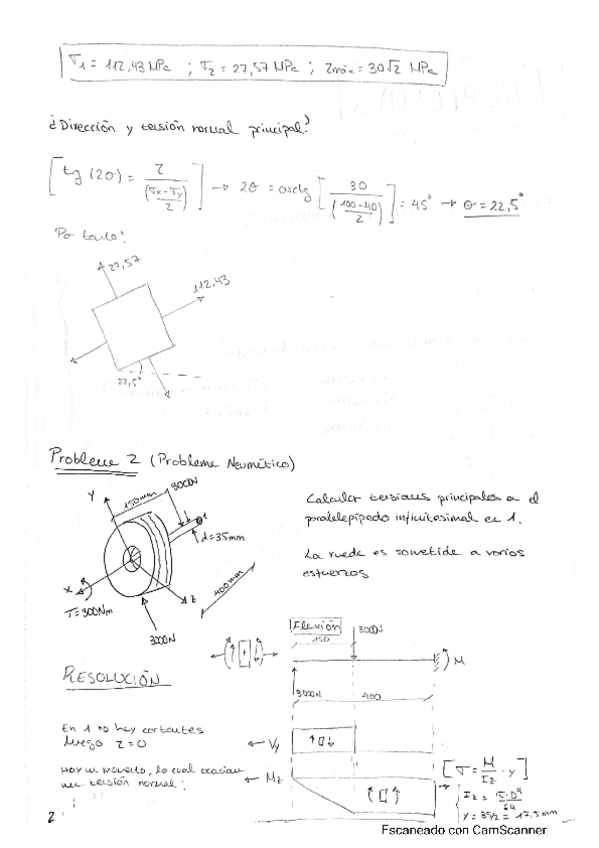 σ1 = 112,43 MPa ; σ2 = 27,57 MPa ; Zmáx = 30√2 MPa
¿Dirección y tensión normal principal?
[tg (2θ) = Z / ((σx - σy) / 2)] → 2θ = arctg [30 / ((100-40) / 2)] = 45° → θ = 22,5°
Po tanto:
27,57
112,43
22,5°
Probleme 2 (Probleme Neumático)
Calcular tensiones principales en el
paralelepípedo infinitesimal en 1.
La rueda es sometida a varios
esfuerzos
Y
150mm
3000N
1
d=35mm
X
Z
400mm
T=300Nm
3000N
Flexión
3000N
150
M
3000N
400
RESOLUCIÓN
En 1 no hay cortantes
luego Z=0
Vy
Hay un momento, lo cual ocasiona
una tensión normal:
Mz
[σ = M / Iz · y]
Iz = π·D⁴ / 64
y = 35/2 = 17,5mm
2
Escaneado con CamScanner